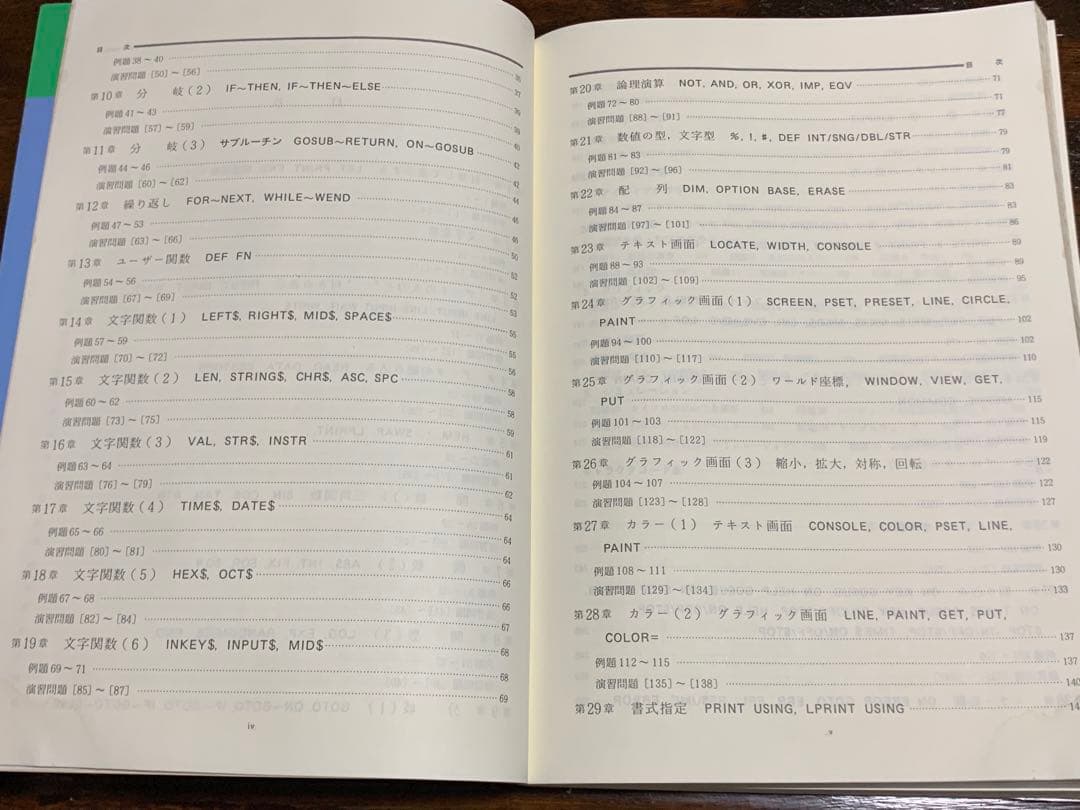 目 次
例題38～40
演習問題［50］～［56］ 35
第10章 分 岐(2) IF～THEN, IF～THEN～ELSE 37
例題41～43
演習問題［57］～［59］
第11章 分 岐(3) サブルーチン GOSUB～RETURN, ON～GOSUB 40
例題44～46 42
演習問題［60］～［62］ 42
第12章 繰り返し FOR～NEXT, WHILE～WEND 44
例題47～53 46
演習問題［63］～［66］ 46
第13章 ユーザー関数 DEF FN 50
例題54～56 52
演習問題［67］～［69］ 52
第14章 文字関数(1) LEFT$, RIGHT$, MID$, SPACE$ 53
例題57～59 55
演習問題［70］～［72］ 55
第15章 文字関数(2) LEN, STRING$, CHR$, ASC, SPC 56
例題60～62 58
演習問題［73］～［75］ 58
第16章 文字関数(3) VAL, STR$, INSTR 59
例題63～64 61
演習問題［76］～［79］ 61
第17章 文字関数(4) TIME$, DATE$ 62
例題65～66 64
演習問題［80］～［81］ 64
第18章 文字関数(5) HEX$, OCT$ 66
例題67～68 66
演習問題［82］～［84］ 67
第19章 文字関数(6) INKEY$, INPUT$, MID$ 68
例題69～71 68
演習問題［85］～［87］ 69
iv
目 次
第20章 論理演算 NOT, AND, OR, XOR, IMP, EQV 71
例題72～80 71
演習問題［88］～［91］ 77
第21章 数値の型，文字型 %, !, #, DEF INT/SNG/DBL/STR 79
例題81～83 79
演習問題［92］～［96］ 81
第22章 配 列 DIM, OPTION BASE, ERASE 83
例題84～87 83
演習問題［97］～［101］ 86
第23章 テキスト画面 LOCATE, WIDTH, CONSOLE 89
例題88～93 89
演習問題［102］～［109］ 95
第24章 グラフィック画面(1) SCREEN, PSET, PRESET, LINE, CIRCLE,
PAINT 102
例題94～100 102
演習問題［110］～［117］ 110
第25章 グラフィック画面(2) ワールド座標， WINDOW, VIEW, GET,
PUT 115
例題101～103 115
演習問題［118］～［122］ 119
第26章 グラフィック画面(3) 縮小，拡大，対称，回転 122
例題104～107 122
演習問題［123］～［128］ 127
第27章 カラー(1) テキスト画面 CONSOLE, COLOR, PSET, LINE,
PAINT 130
例題108～111 130
演習問題［129］～［134］ 133
第28章 カラー(2) グラフィック画面 LINE, PAINT, GET, PUT,
COLOR= 137
例題112～115 137
演習問題［135］～［138］ 140
第29章 書式指定 PRINT USING, LPRINT USING
v